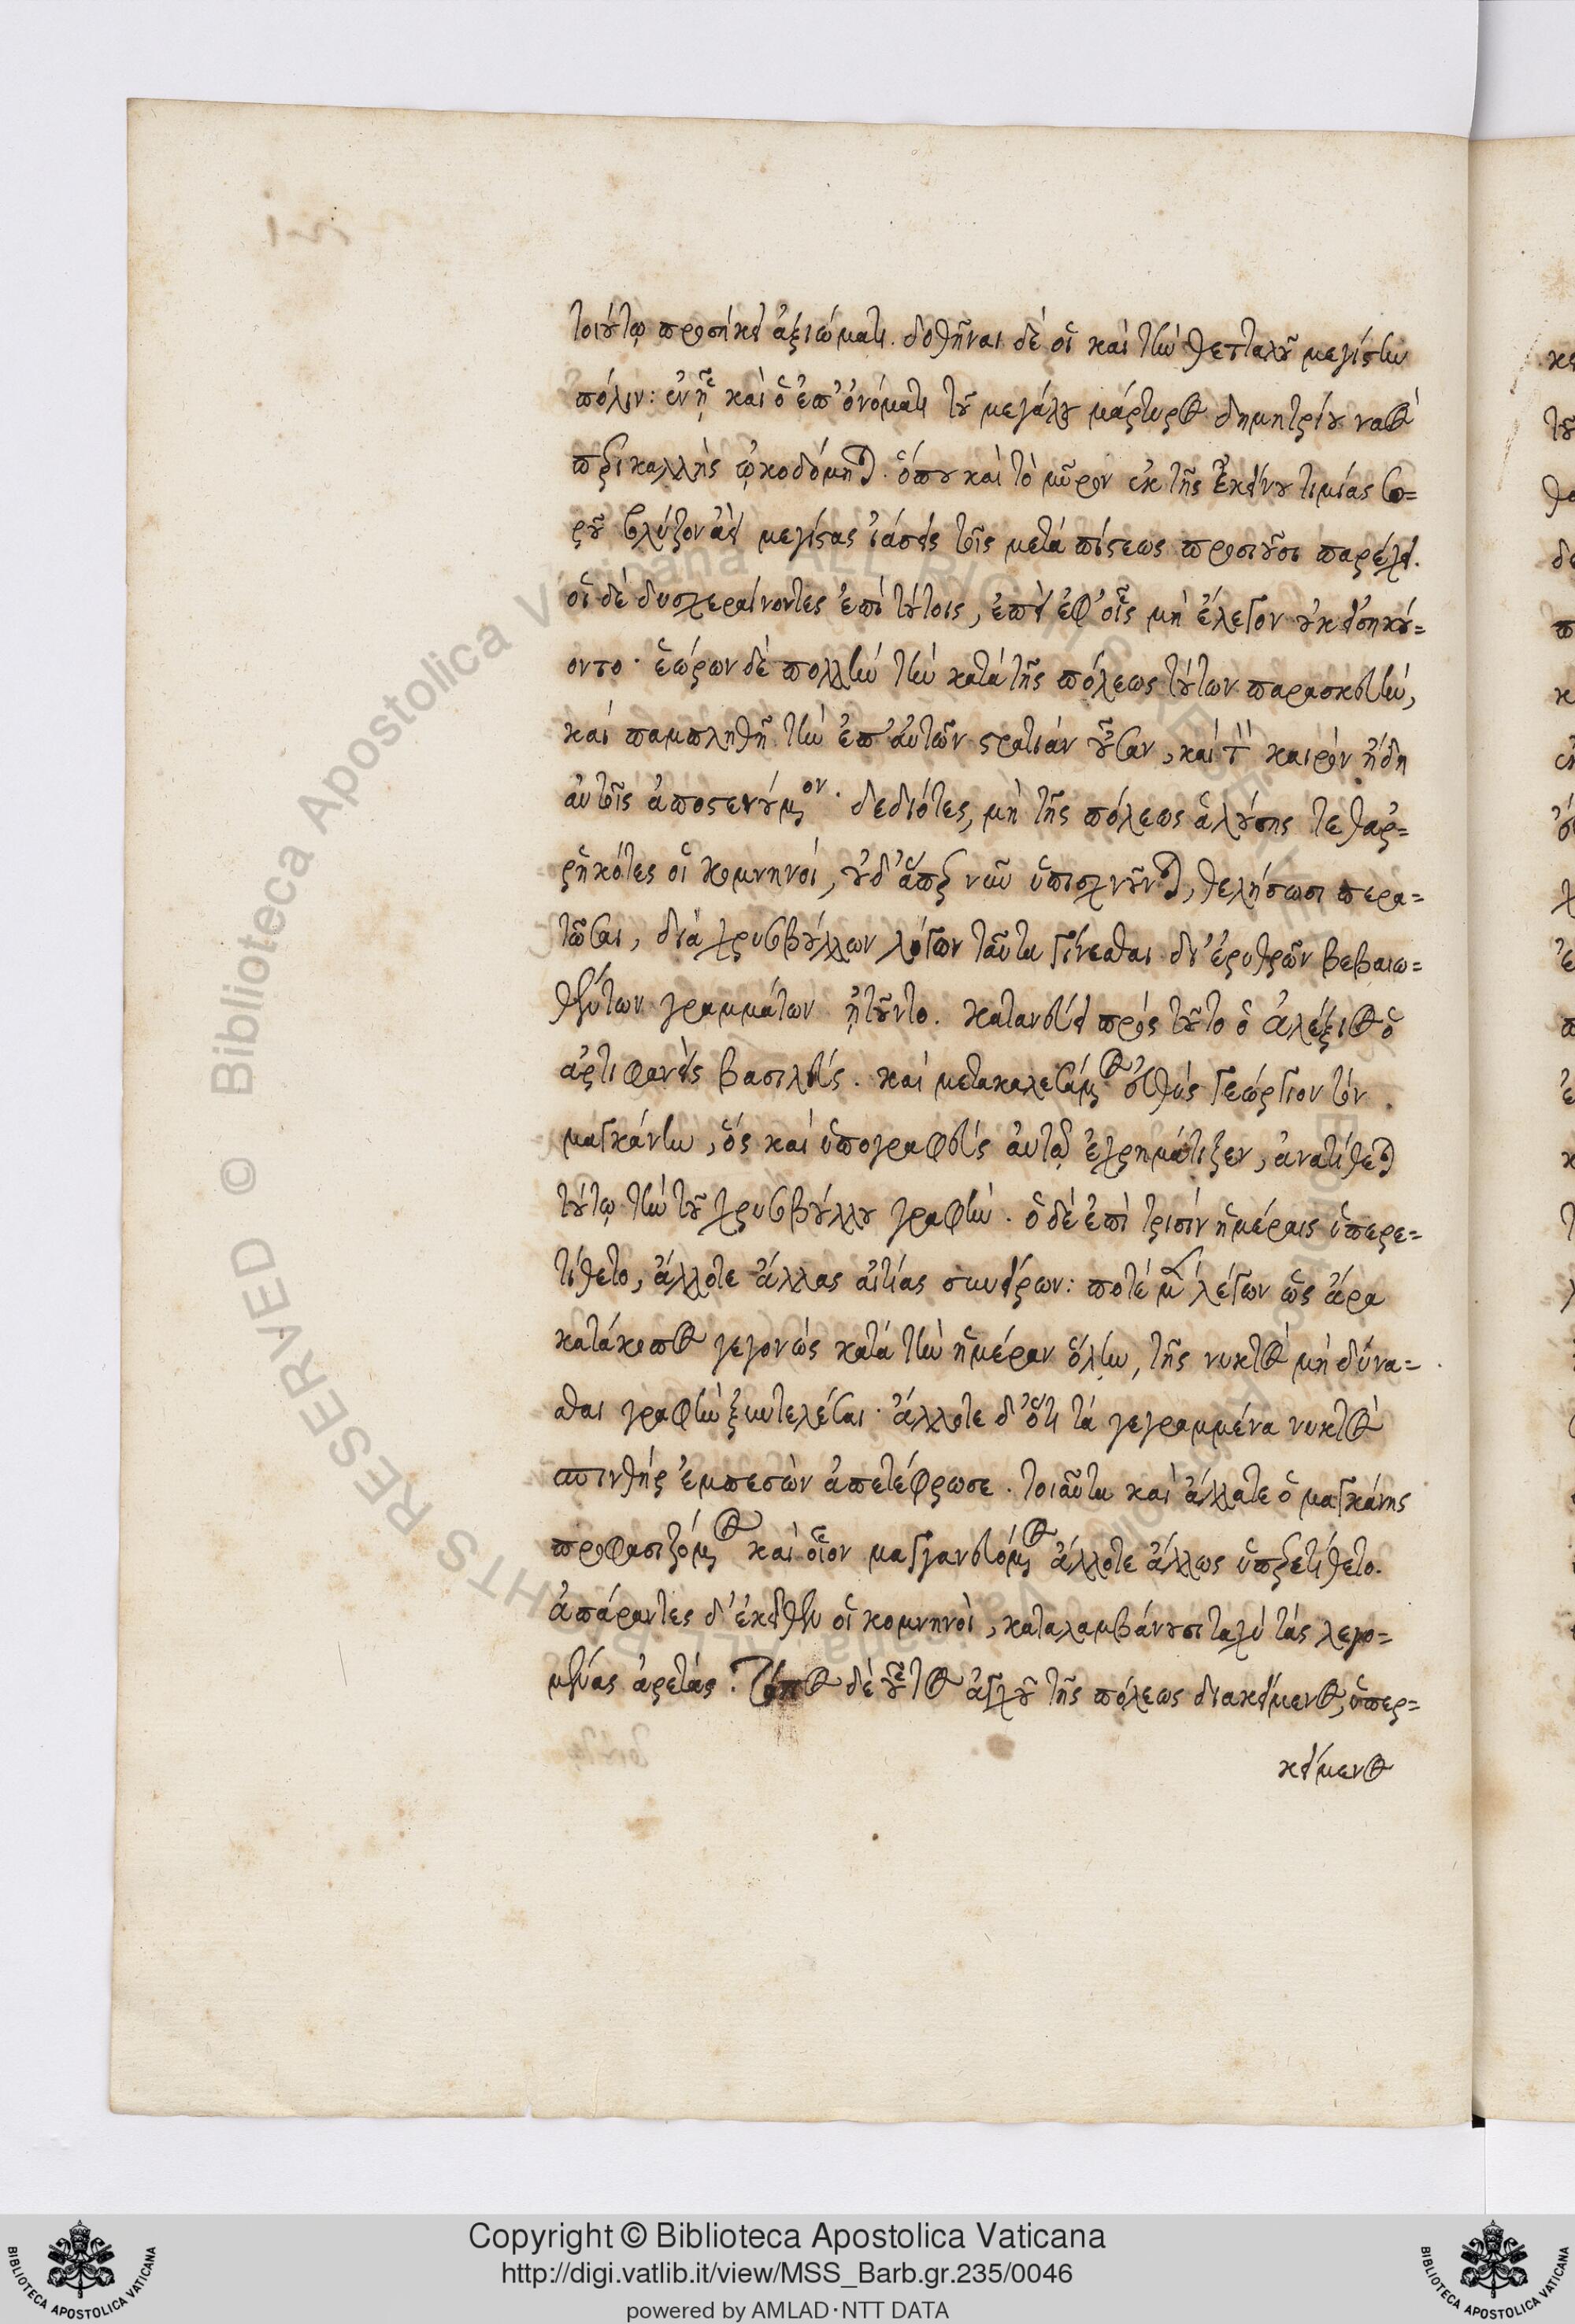 τοιούτῳ προσήκει ἀξιώματι. δοθῆναι δέ οἱ καὶ τὴν θετταλοῦ μεγίστην
πόλιν: ἐν ᾗ καὶ ὁ ἐπ' ὀνόματι τοῦ μεγάλου μάρτυρος δημητρίου ναὸς
περικαλλὴς ᾠκοδόμηται. ὅπου καὶ τὸ μῦρον ἐκ τῆς ἐκείνου τιμίας σο=
ροῦ βλύζον ἀεὶ μεγίστας ἰάσεις τοῖς μετὰ πίστεως προσιοῦσι παρέχει.
οἱ δὲ δυσχεραίνοντες ἐπὶ τούτοις, ἐπεὶ ἐφ' οἷς μὴ ἔλεγον οὐκ εἰσηκού=
οντο· ἑώρων δὲ πολλὴν τὴν κατὰ τῆς πόλεως τούτων παρασκευὴν,
καὶ παμπληθῆ τὴν ἐπ' αὐτῶν στρατιὰν οὖσαν, καὶ τὸν καιρὸν ἤδη
αὐτοῖς ἀποστενούμενον· δεδιότες, μὴ τῆς πόλεως ἁλούσης τεθαρ=
ρηκότες οἱ κομνηνοὶ, οὐδ' ἅπερ νῦν ὑπισχνοῦνται, θελήσωσι περα=
τῶσαι, διὰ χρυσοβούλλων λόγων ταῦτα γίνεσθαι δι' ἐρυθρῶν βεβαιω=
θέντων γραμμάτων ᾐτοῦντο. κατανεύει πρὸς τοῦτο ὁ ἀλέξιος ὁ
ἀρτιφανὴς βασιλεύς. καὶ μετακαλεσάμενος εὐθὺς γεώργιον τὸν
μαγκάνην, ὃς καὶ ὑπογραφεὺς αὐτῷ ἐχρημάτιζεν, ἀνατίθεται
τούτῳ τὴν τοῦ χρυσοβούλλου γραφήν. ὁ δὲ ἐπὶ τρισὶν ἡμέραις ὑπερε=
τίθετο, ἄλλοτε ἄλλας αἰτίας συνείρων: ποτὲ μὲν λέγων ὡς ἄρα
κατάκοπος γεγονὼς κατὰ τὴν ἡμέραν ὅλην, τῆς νυκτὸς μὴ δύνα=
σθαι γραφὴν ξυντελέσαι· ἄλλοτε δ' ὅτι τὰ γεγραμμένα νυκτὸς
σπινθὴρ ἐμπεσὼν ἀπετέφρωσε. τοιαῦτα καὶ ἄλλατε ὁ μαγκάνης
προφασιζόμενος καὶ οἷον μαγγανευόμενος ἄλλοτε ἄλλως ὑπερετίθετο.
ἀπάραντες δ' ἐκεῖθεν οἱ κομνηνοὶ, καταλαμβάνουσι ταχὺ τὰς λεγο=
μένας ἀρετάς. Τόπος δὲ οὗτος ἀγχοῦ τῆς πόλεως διακείμενος, ὑπερ=
κείμενος
Copyright © Biblioteca Apostolica Vaticana
http://digi.vatlib.it/view/MSS_Barb.gr.235/0046
powered by AMLAD·NTT DATA